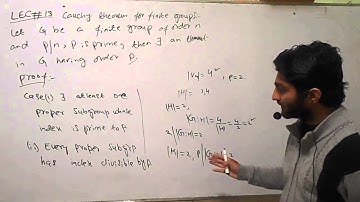 LEC# 13 Cauchy theorem for finite groups:-
let G be a finite group of order n
and p|n, p is prime, then ∃ an element
in G having order p.
proof:-
Case(i) ∃ at least one
proper subgroup whose
index is prime to p.
(ii) Every proper subgroup
has index divisible by p.
|V4| = 4, p=2.
|H| = 2,4
|H|=2,
|G:H| = 4/|H| = 4/2 = 2
2 | |G:H| = 2
|H|=2, p | |G:H|